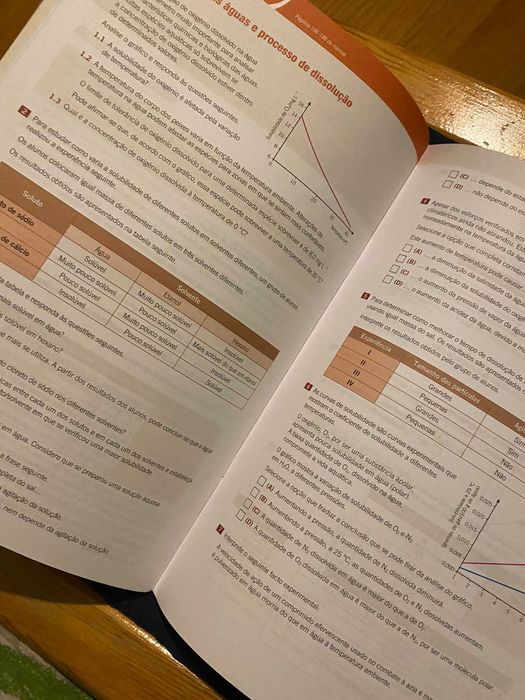 Páginas 136-140 do manual
s águas e processo de dissolução
de oxigénio dissolvido na água
metro muito importante para analisar
características químicas e biológicas das águas.
uitas espécies aquáticas só sobrevivem se
a concentração de oxigénio dissolvido estiver dentro
de determinados valores.
Analise o gráfico e responda às questões seguintes.
1.1 A solubilidade do oxigénio é afetada pela variação
de temperatura?
1.2 A temperatura do corpo dos peixes varia em função da temperatura ambiente. Alterações da
temperatura na água podem afastar as espécies para zonas em que se sintam mais confortáveis.
O limite de tolerância de oxigénio dissolvido para uma determinada espécie sobreviver é de 8,0 mg L⁻¹.
Pode afirmar-se que, de acordo com o gráfico, essa espécie pode sobreviver a uma temperatura de 30 °C?
1.3 Qual é a concentração de oxigénio dissolvido à temperatura de 0 °C?
Solubilidade de O₂/mg L⁻¹
16
14
12
10
8
6
0
10
20
30
40
Temperatura/
2 Para estudar como varia a solubilidade de diferentes solutos em solventes diferentes, um grupo de alunos
realizou a experiência seguinte.
Os alunos colocaram igual massa de diferentes solutos em três solventes diferentes.
Os resultados obtidos são apresentados na tabela seguinte.
Soluto
Solvente
Água
Etanol
Hexano
to de sódio
Solúvel
Muito pouco solúvel
Insolúvel
Muito pouco solúvel
Pouco solúvel
Mais solúvel do que em etanol
de cálcio
Pouco solúvel
Muito pouco solúvel
Insolúvel
Insolúvel
Pouco solúvel
Solúvel
a tabela e responda às questões seguintes.
mais solúvel em água?
solúvel em hexano?
e mais se utiliza. A partir dos resultados dos alunos, pode concluir-se que a água
do cloreto de sódio nos diferentes solventes?
icas entre cada um dos solutos e em cada um dos solventes e estabeleça
to/solvente em que se verificou uma maior solubilidade.
em água. Considere que se preparou uma solução aquosa
a frase seguinte.
pleta do sal...
agitação da solução.
nem depende da agitação da solução.
(C) ... depende do esta
(D) ... não depende do
4 Apesar dos esforços verificados
climáticos ainda não abrandou.
nomeadamente na temperatura da água
Selecione a opção que completa corretame
Este aumento de temperatura pode causar
(A) ... a diminuição da salinidade da água
(B) ... a diminuição da solubilidade do oxi
(C) ... o aumento da pressão de vapor da água
(D) ... o aumento da acidez da água, devido a m
5 Para determinar como melhorar o tempo de dissolução de
usando igual massa de sal. Os resultados são apresentados
Interprete os resultados obtidos pelo grupo de alunos.
Experiência
Tamanho das partículas
Agi
I
Grandes
Sim
II
Pequenas
Sim
III
Grandes
Não
IV
Pequenas
Não
6 As curvas de solubilidade são curvas experimentais que
mostram o coeficiente de solubilidade a diferentes
temperaturas.
O oxigénio, O₂, por ser uma substância apolar,
apresenta pouca solubilidade em água (polar).
A baixa quantidade de O₂ dissolvido na água,
compromete a vida aquática.
O gráfico mostra a variação de solubilidade de O₂ e N₂
em H₂O, a diferentes pressões.
Selecione a opção que traduz a conclusão que se pode tirar da análise do gráfico.
(A) Aumentando a pressão, a quantidade de N₂ dissolvida diminuirá.
(B) Aumentando a pressão, a 25 °C, as quantidades de O₂ e N₂ dissolvidas aumentam.
(C) A quantidade de N₂ dissolvida em água é maior do que a de O₂.
(D) A quantidade de O₂ dissolvida em água é maior do que a de N₂, por ser uma molécula polar.
Solubilidade a 25 °C
(gramas de gás/100 g de água)
0,025
0,020
0,015
0,010
0,005
0,000
1
2
3
4
5
7 Interprete o seguinte facto experimental:
A velocidade de ação de um comprimido efervescente usado no combate à azia é mai
é pulverizado em água morna do que em água à temperatura ambiente.